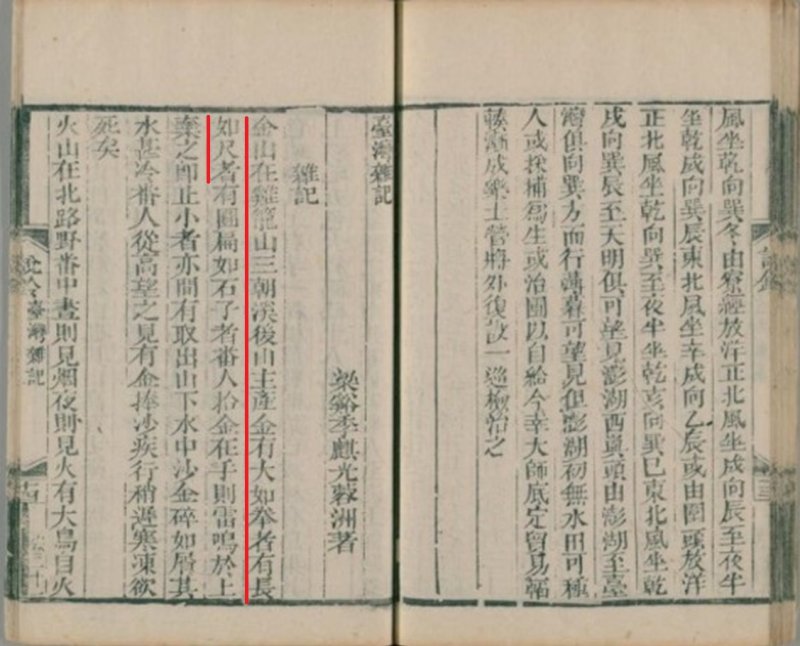 風坐乾向巽冬由寮經放洋正北風坐戍向辰至夜半
坐乾戍向巽辰東北風坐辛戍向乙辰或由圍頭放洋
正北風坐乾向巽至夜半坐乾亥向巽巳東北風坐乾
戍向巽辰至天明俱可望見澎湖西嶼頭由澎湖至臺
灣俱向巽方而行薄暮可望見但澎湖初無水田可種
人或採捕為生或治圃以自給今幸大師底定貿易輻
輳漸成樂土營將外復設一巡檢治之
臺灣雜記
梁谿季麒光蓉洲著
雜記
金山在雞籠山三朝溪後山主產金有大如拳者有長
如尺者有圓扁如石子者番人拾金在手則雷鳴於上
棄之即止小者亦間有取出山下水中沙金碎如屑其
水甚冷番人從高望之見有金捧沙疾行稍遲寒凍欲
死矣
火山在北路野番中晝則見烟夜則見火有大鳥自火
說鈴 臺灣雜記